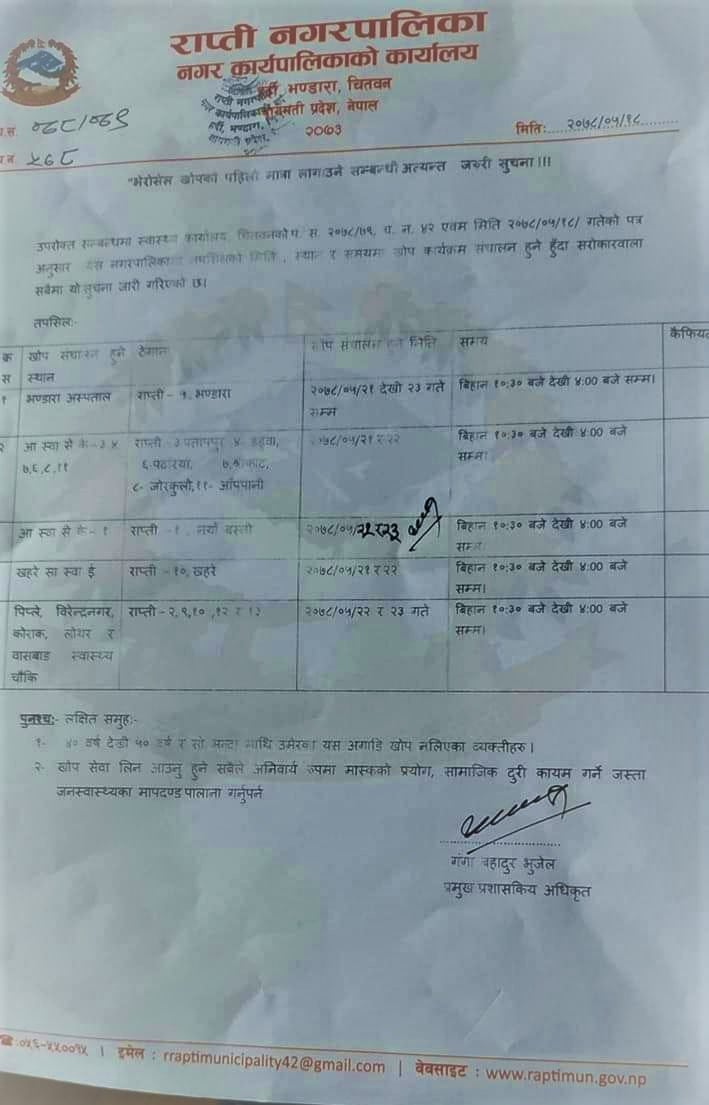 राप्ती नगरपालिका
नगर कार्यपालिकाको कार्यालय
भण्डारा, चितवन
प्रदेश, नेपाल
२०७३
मिति: २०७८/०५/१८
०७८/०७९
५७८
"भेरोसेल खोपको पहिलो मात्रा लगाउने सम्बन्धी अत्यन्त जरुरी सुचना !!!
उपरोक्त सम्बन्धमा स्वास्थ्य कार्यालय, चितवनको प. स. २०७८/७९, च. न. ४२ एवम मिति २०७८/०५/१८/ गतेको पत्र
अनुसार यस नगरपालिकामा तपसिलको मिति, स्थान र समयमा खोप कार्यक्रम संचालन हुने हुँदा सरोकारवाला
सबैमा यो सुचना जारी गरिएको छ।
तपसिल:-
क्र स | खोप संचालन हुने स्थान | ठेगाना | खोप संचालन हुने मिति | समय | कैफियत
१ | भण्डारा अस्पताल | राप्ती - १, भण्डारा | २०७८/०५/२१ देखी २३ गते सम्म | बिहान १०:३० बजे देखी ४:०० बजे सम्म।
२ | आ स्वा से के - ३,४ ७,६,८,११ | राप्ती - ३ प्रतापपुर ४- ६ ७, ८- जोरकुलो, ११- | २०७८/०५/२१ र २२ | बिहान १०:३० बजे देखी ४:०० बजे सम्म।
आ स्वा से के - १ | राप्ती - १, नयाँ बस्ती | २०७८/०५/२१ र २३ | बिहान १०:३० बजे देखी ४:०० बजे सम्म।
खहरे सा स्वा ई | राप्ती - १०, खहरे | २०७८/०५/२१ र २२ | बिहान १०:३० बजे देखी ४:०० बजे सम्म।
पिप्ले, विरेन्द्रनगर, कोराक, लोथर र स्वास्थ्य चौकि | राप्ती - २,९,१०,१२ र १३ | २०७८/०५/२२ र २३ गते | बिहान १०:३० बजे देखी ४:०० बजे सम्म।
पुनश्च:- लक्षित समुह:-
१- ४० वर्ष देखी ५० वर्ष र सो भन्दा माथि उमेरका यस अगाडि खोप नलिएका व्यक्तीहरु।
२- खोप सेवा लिन आउनु हुने सबैले अनिवार्य रुपमा मास्कको प्रयोग, सामाजिक दुरी कायम गर्ने जस्ता
जनस्वास्थ्यका मापदण्ड पालाना गर्नुपर्न
गंगा बहादुर भुजेल
प्रमुख प्रशासकिय अधिकृत
☎:०५६-५५००१५ | इमेल : rraptimunicipality42@gmail.com | वेबसाइट : www.raptimun.gov.np